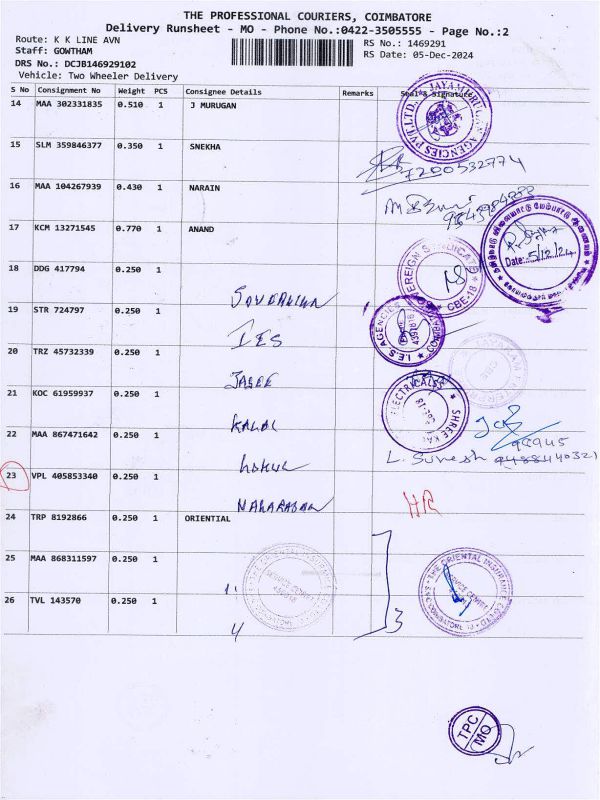 THE PROFESSIONAL COURIERS, COIMBATORE
Delivery Runsheet - MO - Phone No.:0422-3505555 - Page No.:2
Route: K K LINE AVN
RS No.: 1469291
Staff: GOWTHAM
RS Date: 05-Dec-2024
DRS No.: DCJB146929102
Vehicle: Two Wheeler Delivery
S No Consignment No Weight PCS Consignee Details Remarks Seal & Signature
14 MAA 302331835 0.510 1 J MURUGAN
15 SLM 359846377 0.350 1 SNEKHA
7200532774
16 MAA 104267939 0.430 1 NARAIN
17 KCM 13271545 0.770 1 ANAND
Date: 5/12/24
18 DDG 417794 0.250 1
CBE-18
19 STR 724797 0.250 1
I.E.S AGENCIES
IES
20 TRZ 45732339 0.250 1
21 KOC 61959937 0.250 1
ELECTRICALS
SHREE KA
22 MAA 867471642 0.250 1
L. Suresh
23 VPL 405853340 0.250 1
HR
24 TRP 8192866 0.250 1 ORIENTIAL
25 MAA 868311597 0.250 1
THE ORIENTAL INSURANCE CO LTD
COIMBATORE
26 TVL 143570 0.250 1
3
TPC
MO